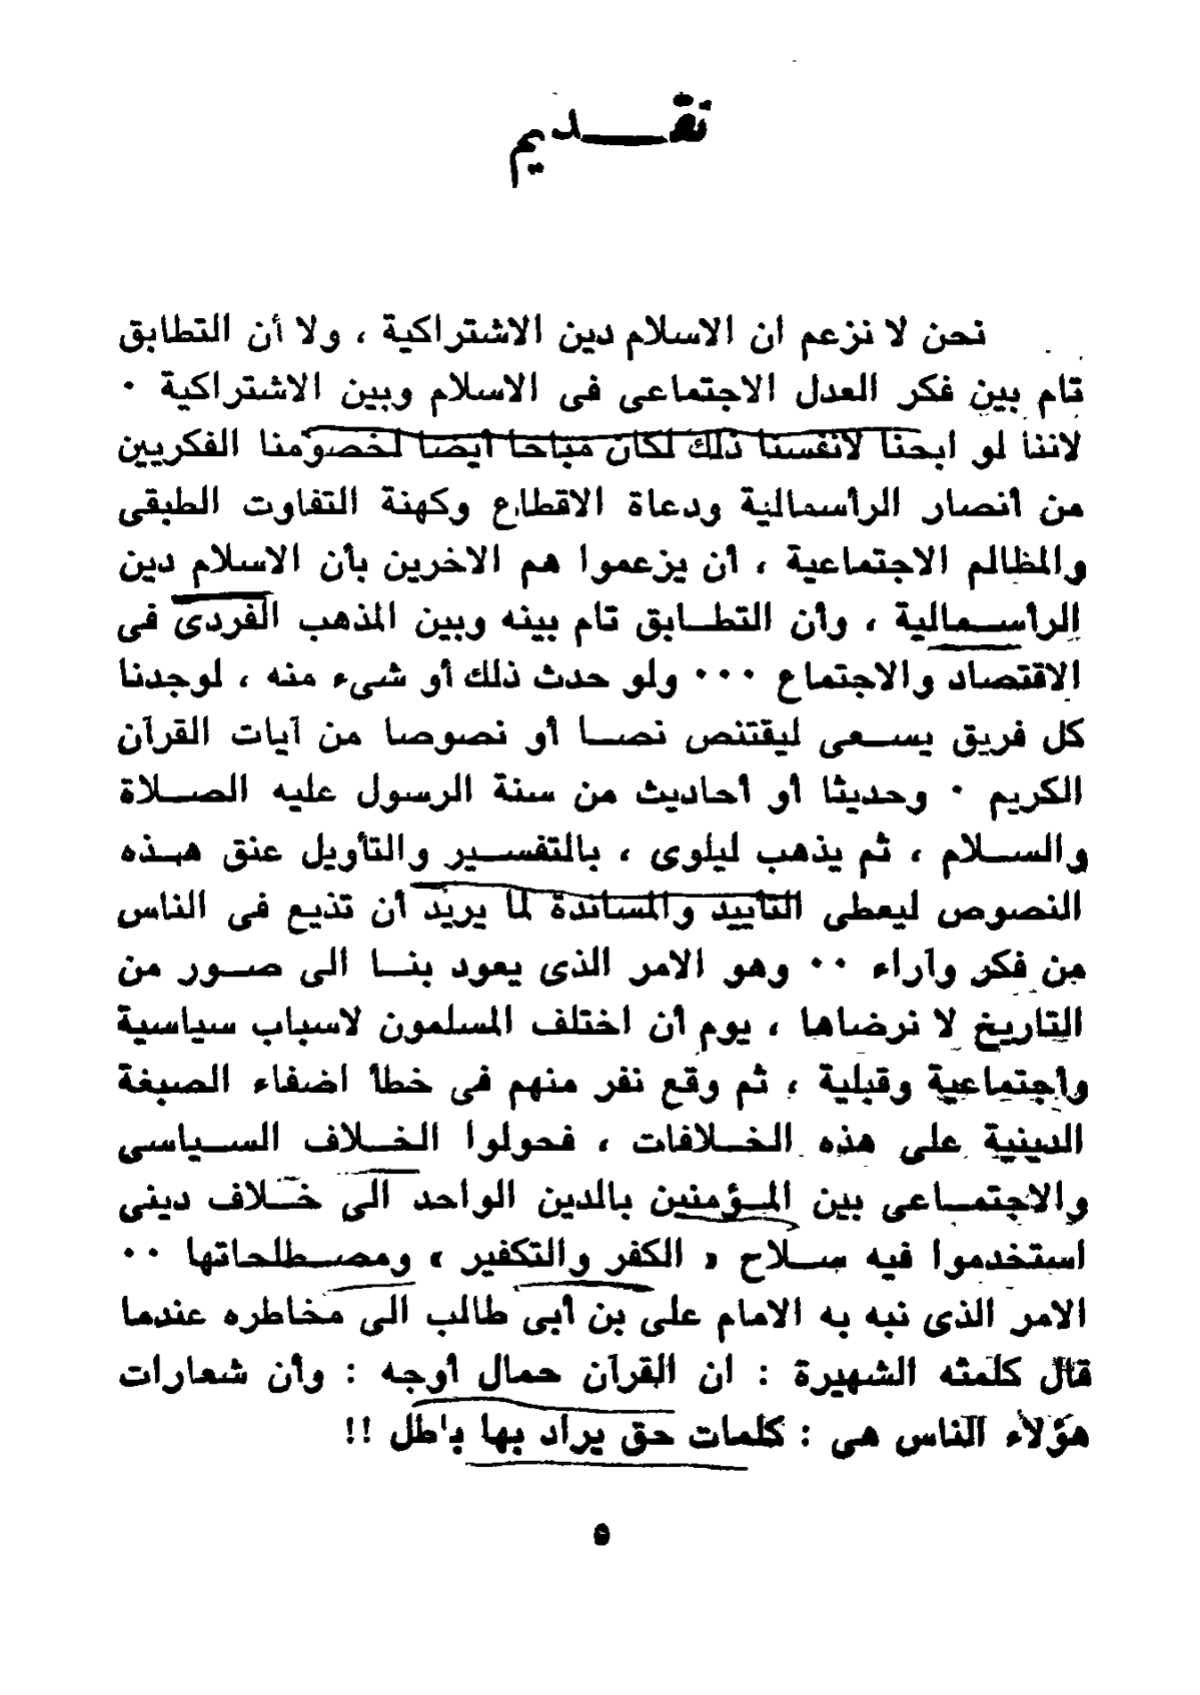 تقديم
نحن لا نزعم ان الاسلام دين الاشتراكية ، ولا أن التطابق
تام بين فكر العدل الاجتماعى فى الاسلام وبين الاشتراكية ٠
لاننا لو ابحنا لانفسنا ذلك لكان مباحا أيضا لخصومنا الفكريين
من أنصار الرأسمالية ودعاة الاقطاع وكهنة التفاوت الطبقى
والمظالم الاجتماعية ، أن يزعموا هم الاخرين بأن الاسلام دين
الرأسمالية ، وأن التطابق تام بينه وبين المذهب الفردى فى
الاقتصاد والاجتماع ٠٠٠ ولو حدث ذلك أو شىء منه ، لوجدنا
كل فريق يسعى ليقتنص نصا أو نصوصا من آيات القرآن
الكريم ٠ وحديثا أو أحاديث من سنة الرسول عليه الصلاة
والسلام ، ثم يذهب ليلوى ، بالتفسير والتأويل عنق هذه
النصوص ليعطى التأييد والمساندة لما يريد أن تذيع فى الناس
من فكر وآراء ٠٠ وهو الامر الذى يعود بنا الى صور من
التاريخ لا نرضاها ، يوم أن اختلف المسلمون لاسباب سياسية
واجتماعية وقبلية ، ثم وقع نفر منهم فى خطأ اضفاء الصبغة
الدينية على هذه الخلافات ، فحولوا الخلاف السياسى
والاجتماعى بين المؤمنين بالدين الواحد الى خلاف دينى
استخدموا فيه سلاح « الكفر والتكفير » ومصطلحاتها ٠٠
الامر الذى نبه به الامام على بن أبى طالب الى مخاطره عندما
قال كلمته الشهيرة : ان القرآن حمال أوجه : وأن شعارات
هؤلاء الناس هى : كلمات حق يراد بها باطل !!
٥